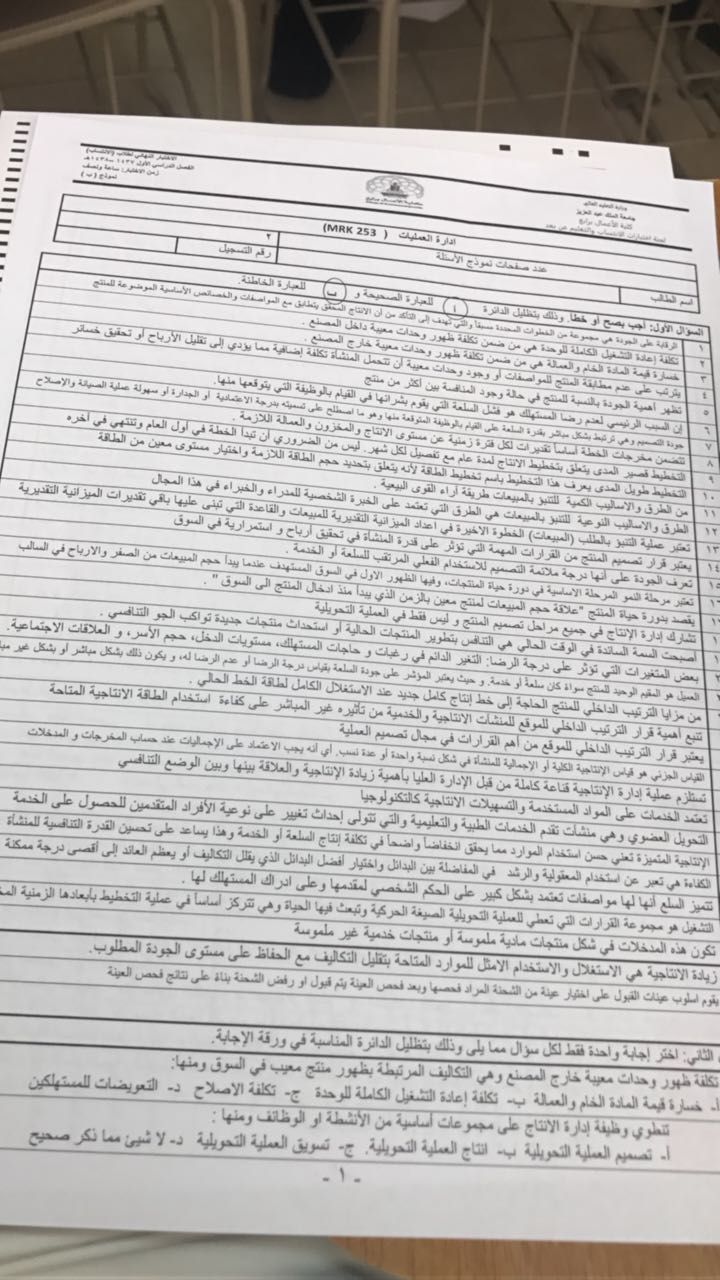 وزارة التعليم العالي
جامعة الملك عبد العزيز
كلية الأعمال برابغ
لجنة اختبارات الانتساب والتعليم عن بعد
الاختبار النهائي لطلاب (الانتساب)
الفصل الدراسي الأول ١٤٣٧-١٤٣٨هـ
زمن الاختبار: ساعة ونصف
نموذج (ب)
ادارة العمليات ( MRK 253)
عدد صفحات نموذج الأسئلة ٢
اسم الطالب رقم التسجيل
السؤال الأول: أجب بصح أو خطا. وذلك بتظليل الدائرة أ للعبارة الصحيحة و ب للعبارة الخاطئة.
١ الرقابة على الجودة هي مجموعة من الخطوات المحددة مسبقا والتي تهدف إلى التأكد من أن الانتاج المحقق يتطابق مع المواصفات والخصائص الأساسية الموضوعة للمنتج
٢ تكلفة إعادة التشغيل الكاملة للوحدة هي من ضمن تكلفة ظهور وحدات معيبة داخل المصنع .
٣ خسارة قيمة المادة الخام والعمالة هي من ضمن تكلفة ظهور وحدات معيبة خارج المصنع .
٤ يترتب على عدم مطابقة المنتج للمواصفات أو وجود وحدات معيبة أن تتحمل المنشأة تكلفة إضافية مما يؤدي إلى تقليل الأرباح أو تحقيق خسائر
٥ تظهر أهمية الجودة بالنسبة للمنتج في حالة وجود المنافسة بين أكثر من منتج
٦ إن السبب الرئيسي لعدم رضا المستهلك هو فشل السلعة التي يقوم بشرائها في القيام بالوظيفة التي يتوقعها منها.
٧ جودة التصميم وهي ترتبط بشكل مباشر بقدرة السلعة على القيام بالوظيفة المتوقعة منها وهو ما اصطلح على تسميته بدرجة الاعتمادية أو الجدارة أو سهولة عملية الصيانة والاصلاح
٨ تتضمن مخرجات الخطة أساساً تقديرات لكل فترة زمنية عن مستوى الانتاج والمخزون والعمالة اللازمة .
٩ التخطيط قصير المدى يتعلق بتخطيط الانتاج لمدة عام مع تفصيل لكل شهر. ليس من الضروري أن تبدأ الخطة في أول العام وتنتهي في أخره
١٠ التخطيط طويل المدى يعرف هذا التخطيط باسم تخطيط الطاقة لأنه يتعلق بتحديد حجم الطاقة اللازمة واختيار مستوى معين من الطاقة
١١ من الطرق والاساليب الكمية للتنبؤ بالمبيعات طريقة آراء القوى البيعية .
١٢ الطرق والاساليب النوعية للتنبؤ بالمبيعات هي الطرق التي تعتمد على الخبرة الشخصية للمدراء والخبراء في هذا المجال
١٣ تعتبر عملية التنبؤ بالطلب (المبيعات) الخطوة الاخيرة في اعداد الميزانية التقديرية للمبيعات والقاعدة التي تبنى عليها باقي تقديرات الميزانية التقديرية
١٤ يعتبر قرار تصميم المنتج من القرارات المهمة التي تؤثر على قدرة المنشأة في تحقيق أرباح و استمرارية في السوق
تعرف الجودة على أنها درجة ملائمة التصميم للاستخدام الفعلي المرتقب للسلعة أو الخدمة .
تعتبر مرحلة النمو المرحلة الاساسية في دورة حياة المنتجات، وفيها الظهور الاول في السوق المستهدف عندما يبدأ حجم المبيعات من الصفر والارباح في السالب
يقصد بدورة حياة المنتج "علاقة حجم المبيعات لمنتج معين بالزمن الذي يبدأ منذ ادخال المنتج الى السوق " .
تشارك إدارة الإنتاج في جميع مراحل تصميم المنتج و ليس فقط في العملية التحويلية
أصبحت السمة السائدة في الوقت الحالي هي التنافس بتطوير المنتجات الحالية أو استحداث منتجات جديدة تواكب الجو التنافسي .
بعض المتغيرات التي تؤثر على درجة الرضا: التغير الدائم في رغبات و حاجات المستهلك، مستويات الدخل، حجم الأسر، و العلاقات الاجتماعية.
العميل هو المقيم الوحيد للمنتج سواء كان سلعة أو خدمة. و حيث يعتبر المؤشر على جودة السلعة بقياس درجة الرضا أو عدم الرضا له، و يكون ذلك بشكل مباشر أو بشكل غير
من مزايا الترتيب الداخلي للمنتج الحاجة إلى خط إنتاج كامل جديد عند الاستغلال الكامل لطاقة الخط الحالي .
تنبع أهمية قرار الترتيب الداخلي للموقع للمنشآت الانتاجية والخدمية من تأثيره غير المباشر على كفاءة استخدام الطاقة الانتاجية المتاحة
يعتبر قرار الترتيب الداخلي للموقع من أهم القرارات في مجال تصميم العملية
القياس الجزئي هو قياس الإنتاجية الكلية أو الإجمالية للمنشأة في شكل نسبة واحدة أو عدة نسب. أي أنه يجب الاعتماد على الإجماليات عند حساب المخرجات و المدخلات
تستلزم عملية إدارة الإنتاجية قناعة كاملة من قبل الإدارة العليا بأهمية زيادة الإنتاجية والعلاقة بينها وبين الوضع التنافسي
تعتمد الخدمات على المواد المستخدمة والتسهيلات الانتاجية كالتكنولوجيا
التحويل العضوي وهي منشآت تقدم الخدمات الطبية والتعليمية والتي تتولى إحداث تغيير على نوعية الأفراد المتقدمين للحصول على الخدمة
الإنتاجية المتميزة تعني حسن استخدام الموارد مما يحقق انخفاضاً واضحاً في تكلفة إنتاج السلعة أو الخدمة وهذا يساعد على تحسين القدرة التنافسية للمنشأة
الكفاءة هي تعبر عن استخدام المعقولية والرشد في المفاضلة بين البدائل واختيار أفضل البدائل الذي يقلل التكاليف أو يعظم العائد إلى أقصى درجة ممكنة
تتميز السلع أنها لها مواصفات تعتمد بشكل كبير على الحكم الشخصي لمقدمها وعلى ادراك المستهلك لها .
التشغيل هو مجموعة القرارات التي تعطي للعملية التحويلية الصيغة الحركية وتبعث فيها الحياة وهي تتركز أساساً في عملية التخطيط بأبعادها الزمنية
تكون هذه المدخلات في شكل منتجات مادية ملموسة أو منتجات خدمية غير ملموسة
زيادة الانتاجية هي الاستغلال والاستخدام الامثل للموارد المتاحة بتقليل التكاليف مع الحفاظ على مستوى الجودة المطلوب.
يقوم اسلوب عينات القبول على اختيار عينة من الشحنة المراد فحصها وبعد فحص العينة يتم قبول او رفض الشحنة بناءً على نتائج فحص العينة
الثاني: اختر إجابة واحدة فقط لكل سؤال مما يلي وذلك بتظليل الدائرة المناسبة في ورقة الإجابة.
تكلفة ظهور وحدات معيبة خارج المصنع وهي التكاليف المرتبطة بظهور منتج معيب في السوق ومنها:
أ- خسارة قيمة المادة الخام والعمالة ب- تكلفة إعادة التشغيل الكاملة للوحدة ج- تكلفة الاصلاح د- التعويضات للمستهلكين
تنطوي وظيفة إدارة الانتاج على مجموعات أساسية من الأنشطة او الوظائف ومنها :
أ- تصميم العملية التحويلية ب- انتاج العملية التحويلية. ج- تسويق العملية التحويلية د- لا شيئ مما ذكر صحيح
- ١ -